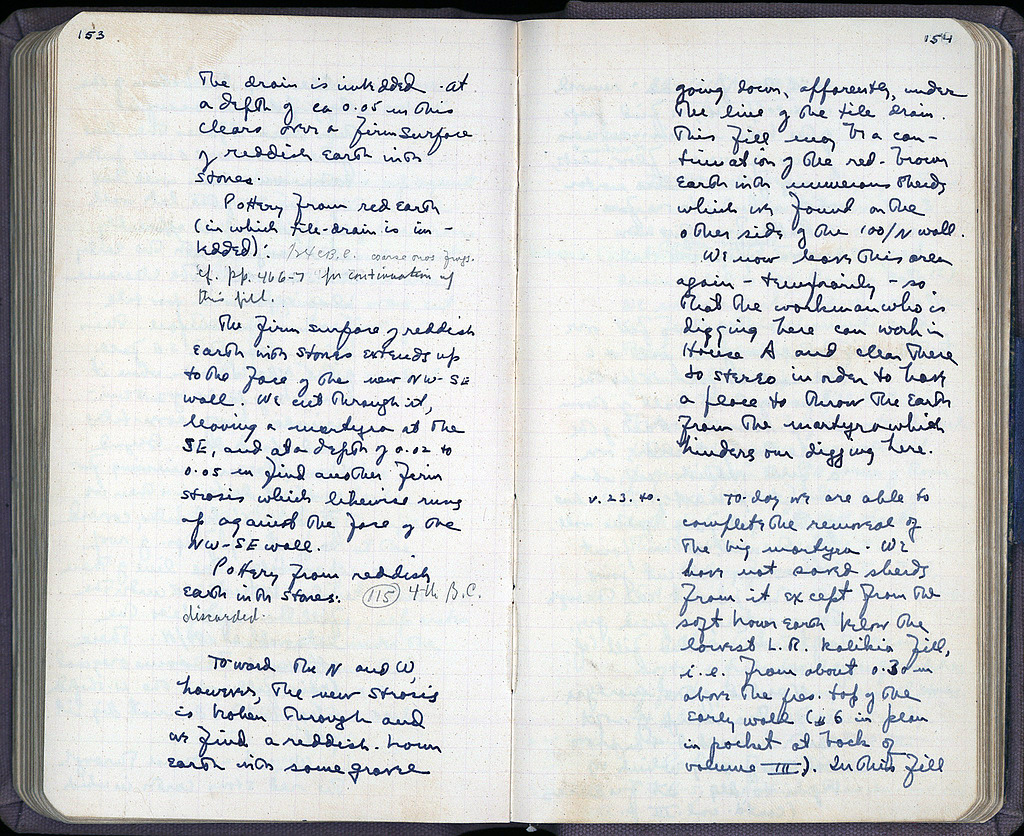 153
The drain is imbedded at
a depth of ca 0.05 m this
clears over a firm surface
of reddish earth with
stones.
Pottery from red earth
(in which tile-drain is im-
bedded):
coarse ones frags.
cf. pp. 466-7 for continuation of
this fill.
The firm surface of reddish
earth with stones extends up
to the face of the new NW-SE
wall. We cut through it,
leaving a martyra at the
SE, and at a depth of 0.02 to
0.05 m find another firm
strosis which likewise runs
up against the face of the
NW-SE wall.
Pottery from reddish
earth with stones. (115) 4th B.C.
discarded.
Toward the N and W,
however, the new strosis
is broken through and
we find a reddish-brown
earth with some gravel
154
going down, apparently, under
the line of the tile drain.
This fill may be a con-
tinuation of the red-brown
earth with numerous sherds
which we found on the
other side of the 100/N wall.
We now leave this area
again - temporarily - so
that the workman who is
digging here can work in
House A and clear there
to stereo in order to have
a place to throw the earth
from the martyra which
hinders our digging here.
V. 23. 40. To-day we are able to
complete the removal of
the big martyra. We
have not saved sherds
from it except from the
soft brown earth below the
lowest L.R. kalikia fill,
i.e. from about 0.30 m
above the pres. top of the
early wall (#6 in plan
in pocket at back of
volume III). In this fill